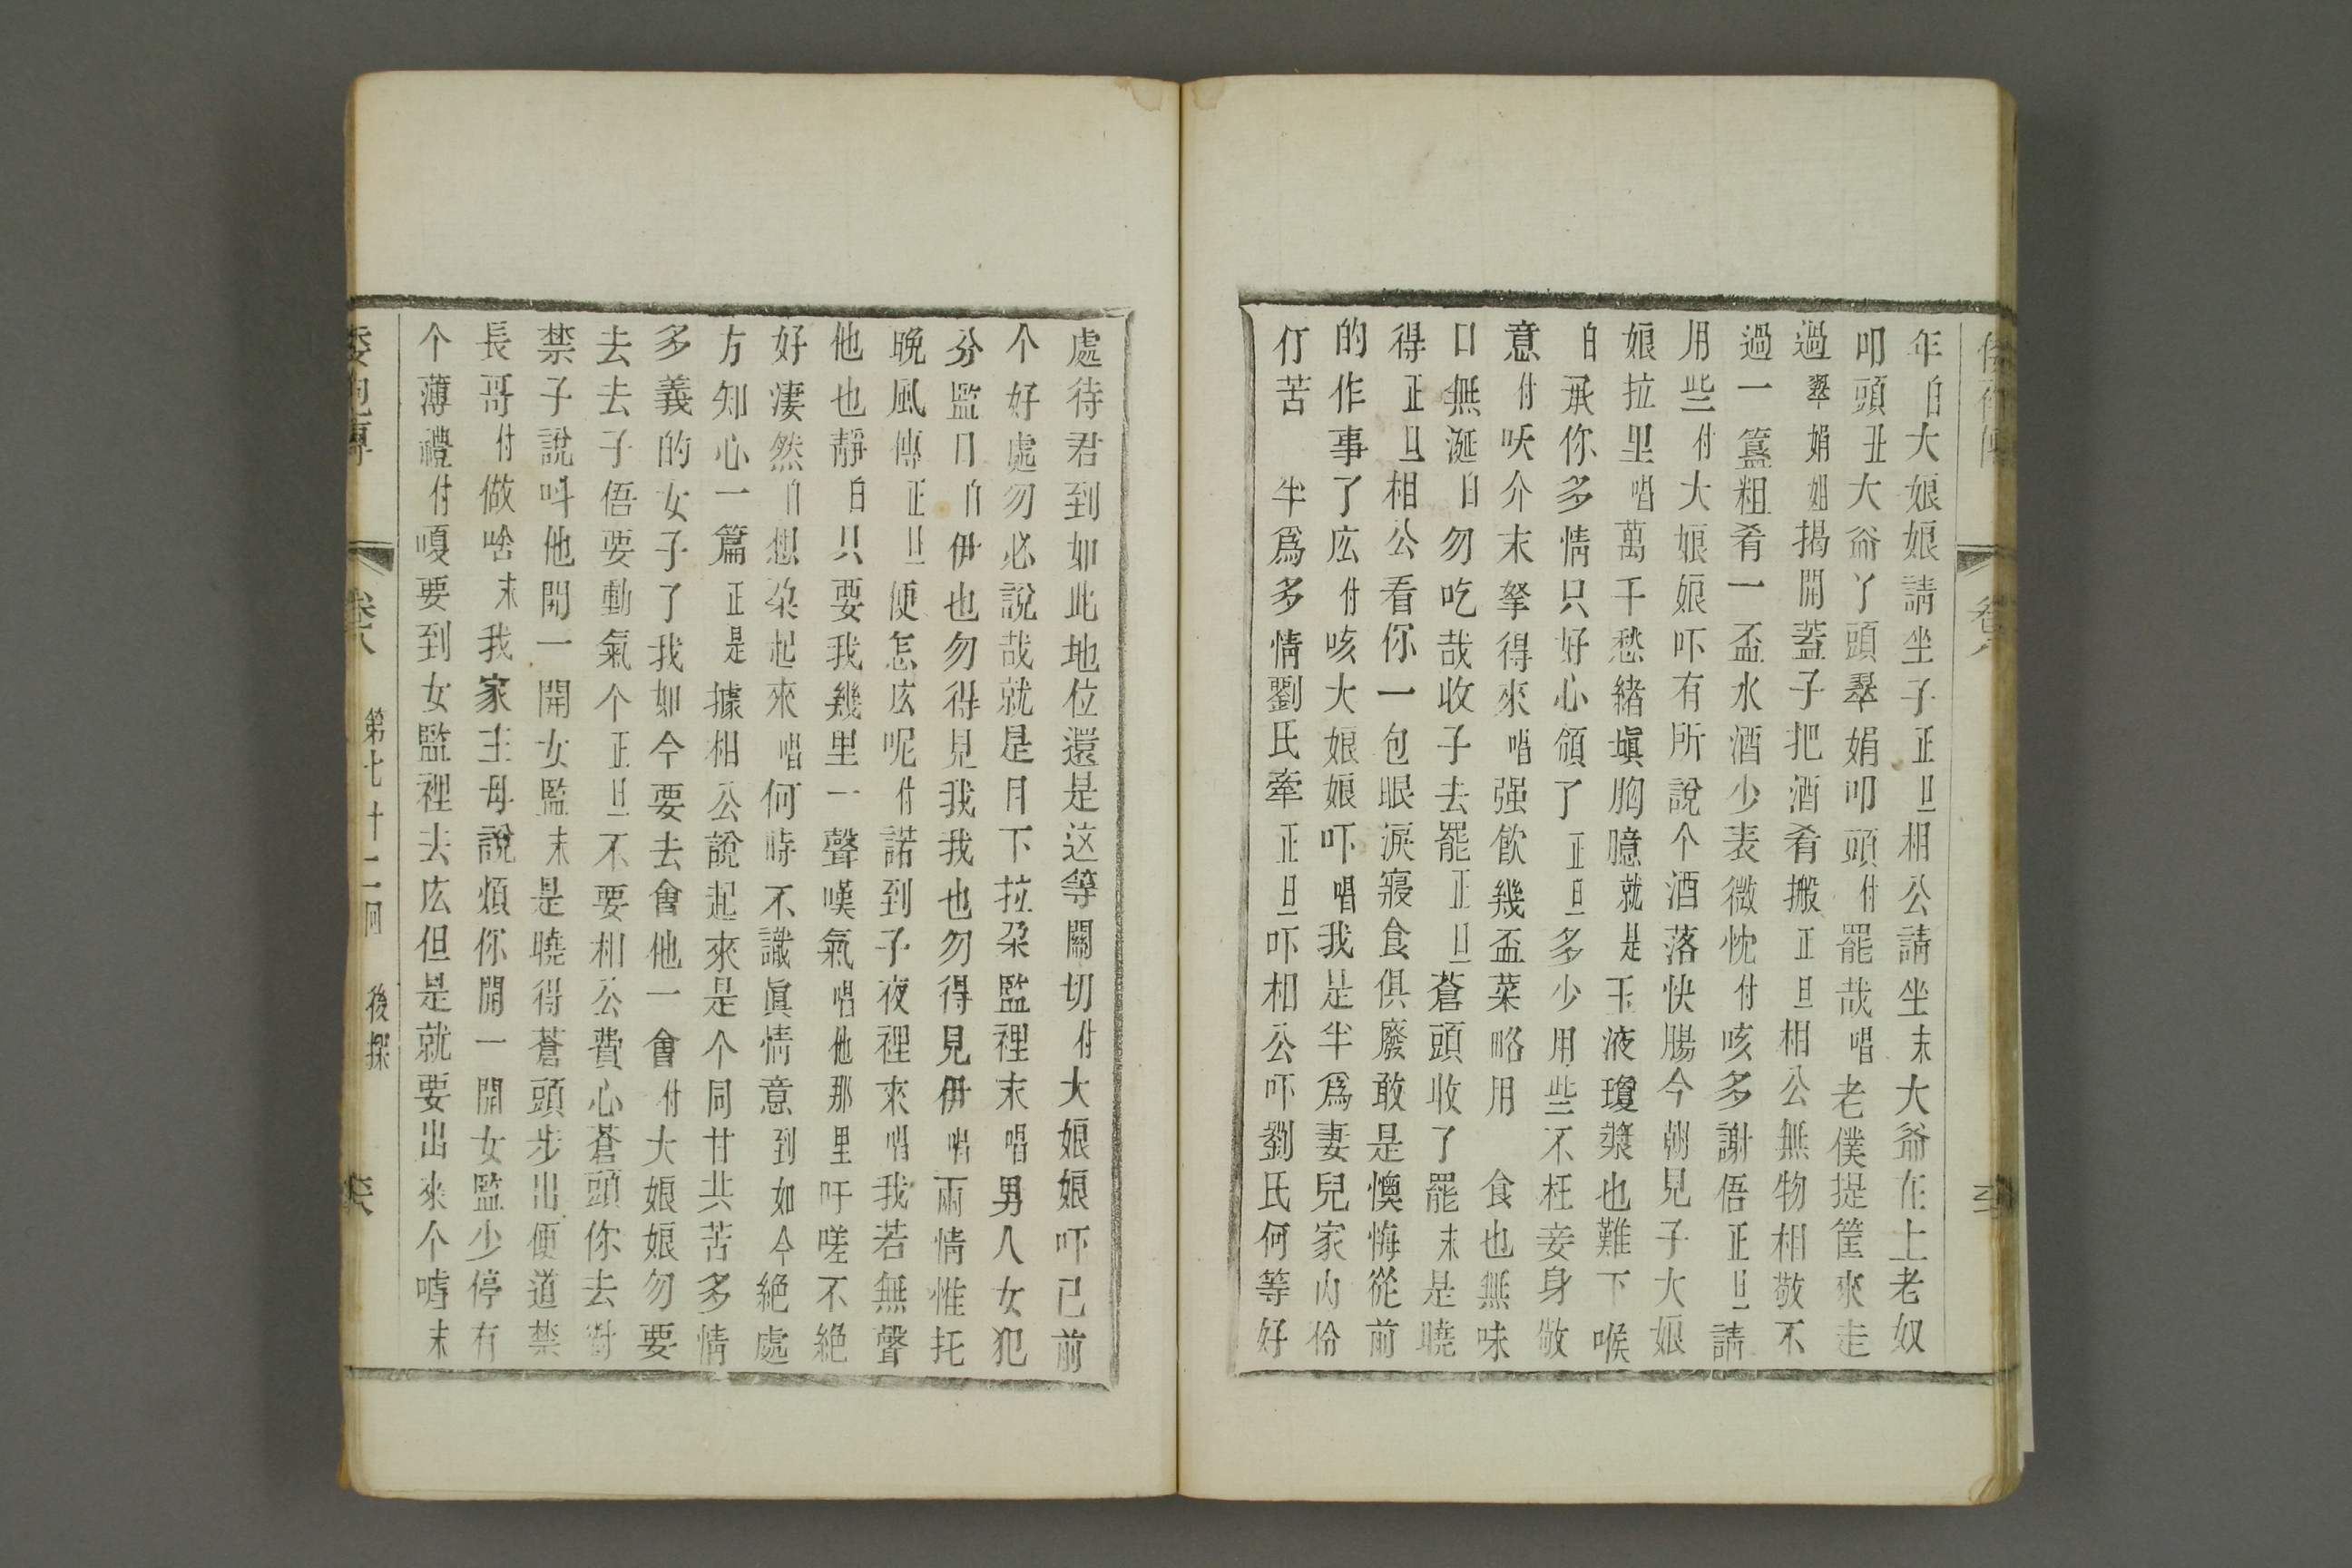 年白大娘娘請坐子正旦相公請坐末大爺在上老奴
叩頭丑大爺丫頭翠娟叩頭付罷哉唱老僕提筐來走
過翠娟姐揭開蓋子把酒肴搬正旦相公無物相敬不
過一簋粗肴一盃水酒少表微忱付咳多謝俉正旦請
用些付大娘娘吓有所說个酒落快腸今朝見子大娘
娘拉里唱萬千愁緒塡胸臆就是玉液瓊漿也難下喉
白承你多情只好心領了正旦多少用些不枉妾身敬
意付呒介末拏得來唱强飲幾盃菜略用 食也無味
口無涎白勿吃哉收子去罷正旦蒼頭收了罷末是曉
得正旦相公看你一包眼淚寢食俱廢敢是懊悔從前
的作事了庅付咳大娘娘吓唱我是半爲妻兒家內伶
仃苦 半爲多情劉氏牽正旦吓相公吓劉氏何等好
卷八
處待君到如此地位還是这等關切付大娘娘吓已前
个好處勿必說哉就是月下拉朶監裡末唱男人女犯
分監口白伊也勿得見我我也勿得見伊唱兩情惟托
晚風傳正旦便怎庅呢付諾到子夜裡來唱我若無聲
他也靜白只要我幾里一聲嘆氣唱他那里吁嗟不絶
好淒然白想朶起來唱何時不識眞情意到如今絕處
方知心一篇正是據相公說起來是个同甘共苦多情
多義的女子了我如今要去會他一會付大娘娘勿要
去去子俉要動氣个正旦不要相公費心蒼頭你去對
禁子說呌他開一開女監末是曉得蒼頭步出便道禁
長哥付做啥末我家主母說煩你開一開女監少停有
个薄禮付嗄要到女監裡去庅但是就要出來个嘘末
倭袍傳
卷八
第七十二囘 後探